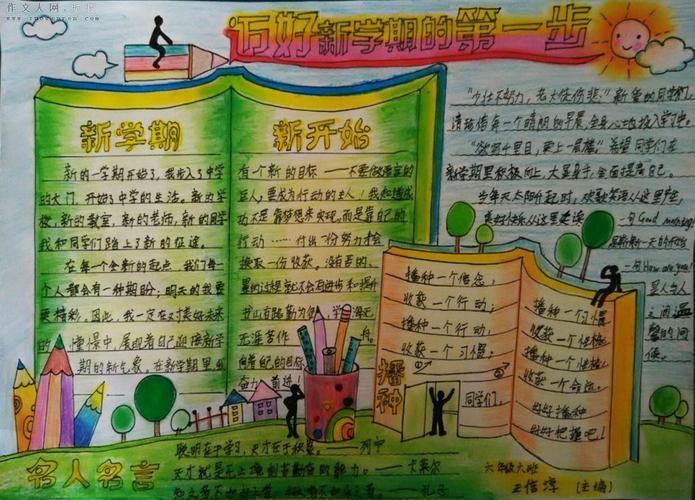 作文人网
迈好新学期的第一步
新学期
新的一学期开始了,我步入了中学
的大门,开始了中学的生活。新的学
校,新的教室,新的老师,新的同学
我和同学们踏上了新的征途。
在每一个全新的起点,我们每一
个人都会有一种期盼:明天的我要
更精彩。因此,我一定在对美好未来
的憧憬中,展现着自己迎接新学
期的新气象。在新学期里,
新开始
有个新的目标
巨人,要成为行动的主人!我知道成
功不是靠梦想来实现,而是靠自己的
行动……付出一份努力才会
换取一份收获。没有苦的
书山有路勤为径,学海无
无涯苦作舟。
向着自己的目标
奋力奋进!
"少壮不努力,老大徒伤悲"新学的同学们,
请珍惜每一个晴朗的早晨,全身心地投入学习中。
"欲穷千里目,更上一层楼"希望同学们在
新学期里积极向上,大显身手,全面提高自己。
当每天太阳升起时,欢歌笑语从这里
美好快乐从这里
一句Good morning!
新的一天的
一句How are you!
是人与人
之间温
馨的问
候。
播种
播种一个信念,
收获一个行动;
播种一个行动,
收获一个习惯;
同学们,
播种一个习惯,
收获一个性格;
播种一个性格,
收获一个命运。
好好播种
好好把握吧!
名人名言
聪明在于学习,天才在于积累。——列宁
天才就是无止境刻苦勤奋的能力。——卡莱尔
——孔子
六年级六班
(主编)